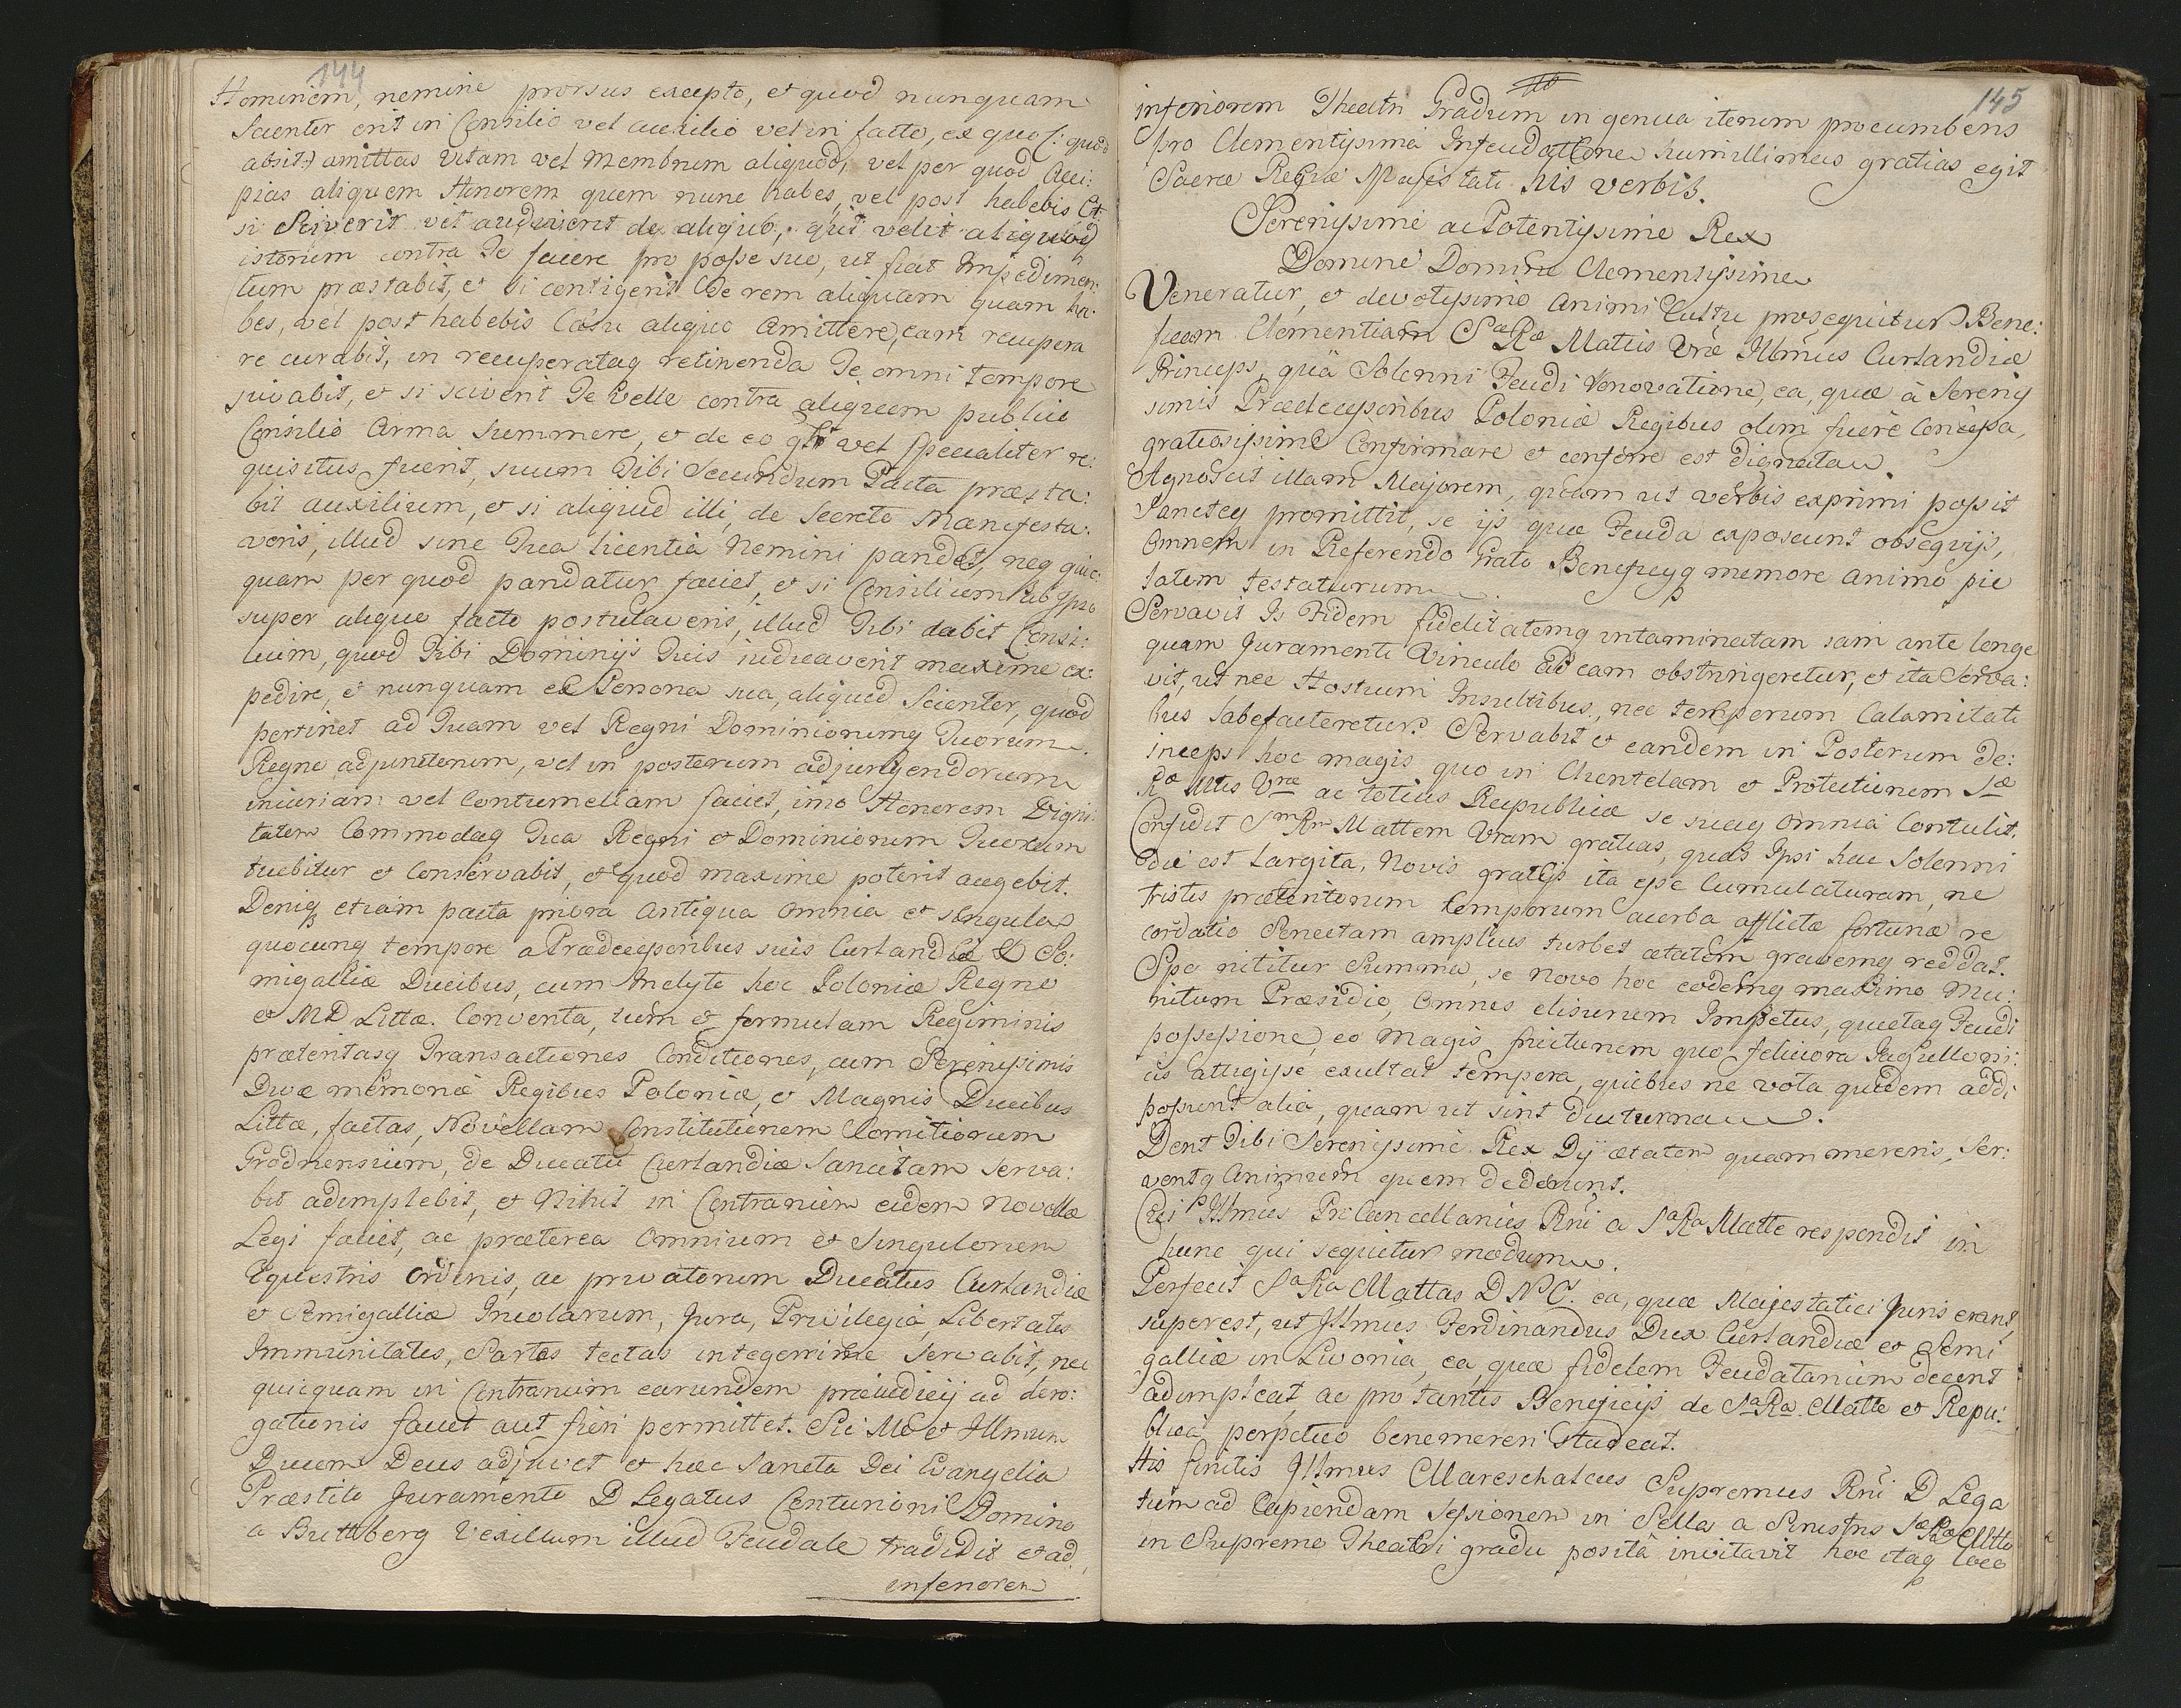 144
Hominem, nemine prorsus excepto, et quod nunquam
Scienter erit in Consilio vel auxilio vel in facto, ex quo (: quod
absit :) amittas vitam vel Membrum aliquod, vel per quod Acci:
pias aliquem Honorem quem nunc habes, vel post habebis Et
si Sciverit vel audiverit de aliquo, qui velit aliquod
istorum contra Te facere pro posse suo, ut fiat Impedimen:
tum præstabit, et si contigerit Te rem aliquam quam ha:
bes, vel post habebis Casu aliquo Amittere, eam recupera
re curabit, in recuperataq retinenda Te omni tempore
juvabit, et si sciverit Te Velle contra aliquem publico
Consilio Arma summere, et de eo glr vel specialiter re:
quisitus fuerit, suum Tibi Secundum Pacta præsta:
bit auxilium, et si aliquid illi, de Secreto Manifesta:
veris, illud sine Tua licentia Nemini pandet, neq quic:
quam per quod pandatur faciet, et si Consilium ab Ipso
super aliquo facto postulaveris, illud Tibi dabit Consi:
lium, quod Tibi Dominijs Tuis iudicaverit maxime ex:
pedire, et nunquam ex Persona sua, aliquid Scienter, quod
pertinet ad Tuam vel Regni Dominiorumq Tuorum
Regno adjunctorum, vel in posterum adjungendorum
iniuriam vel Contumeliam faciet, imo Honorem Digni:
tatem Commodaq Tua Regni et Dominiorum Tuorum
tuebitur et Conservabit, et quod maxime poterit augebit.
Deniq etiam pacta priora Antiqua omnia et singula
quocunq tempore a Prædecessoribus suis Curlandiæ & Se:
migalliæ Ducibus, cum Inclyto hoc Poloniæ Regno
et M D Littæ. Conventa, tum et formulam Regiminis
prætentasq Transactiones Conditiones, cum Serenissimis
Divæ memoriæ Regibus Poloniæ, et Magnis Ducibus
Littæ, factas, Novellam Constitutionem Comitiorum
Grodnensium, de Ducatu Curlandiæ Sancitam serva:
bit adimplebit, et Nihil in Contrarium eidem Novellæ
Legi faciet, ac præterea Omnium et Singulorum
Equestris ordinis, ac privatorum Ducatus Curlandiæ
et Semigalliæ Incolarum, Jura, Privilegia, Libertates
Immunitates, Sartas tectas integerrime servabit, nec
quicquam in Contrarium earundem præiudicij ad dero:
gationis faciet aut fieri permittet. Sic Me et Illmum
Ducem Deus adjuvet et hæc Sancta Dei Evangelia
Præstito Juramento D Legatus Centurioni Domino
a Buttberg Vexillum illud Feudale tradidit et ad
inferiorem
145
inferiorem Theatri Gradum in genua iterum procumbens
pro Clementissima Infeudatione humillimas gratias egit
Sacræ Regiæ Majestati his verbis.
Serenissime ac Potentissime Rex
Domine Domine Clementissime
Veneratur, et devotissimo Animi Cultu prosequitur Bene:
ficam Clementiam Sæ Ræ Mattis Vræ Illmus Curlandiæ
Princeps, quâ Solenni Feudi Renovatione, ea, quæ à Serenis
simis Prædecessoribus Poloniæ Regibus olim fuere Concessa,
gratiosissime Confirmare et conferre est dignata.
Agnoscit illam Majorem, quam ut verbis exprimi possit
Sancteq promittit, se ijs quæ Feuda exposcunt obsequijs,
Omnem in Referendo Grato Beneficijq memore animo pie
tatem testaturum.
Servavit Is Fidem fidelitatemq intaminatam iam ante longe
quam Juramenti Vinculo ad eam obstringeretur, et ita serva:
vit, ut nec Hostium Insultibus, nec temporum Calamitati
bus labefactaretur. Servabit et eandem in Posterum de:
inceps hoc magis quo in Clientelam et Protectionem Sæ
Ræ Mtis Vræ ac totius Reipublicæ se suaq omnia Contulit.
Confidit Sm Rm Mattem Vram gratias, quas Ipsi hac Solenni
die est largita, Novis gratijs ita esse Cumulaturam, ne
tristis præteritorum temporum acerba afflictæ fortunæ re
cordatio Senectam amplius turbet ætatem gravemq reddat.
Spe nititur Summa, se Novo hoc eodemq maximo Mu:
nitum Præsidio, Omnes elisurum Impetus, quietaq Feudi
possessione, eo Magis fruiturum quo feliciora Jagielloni:
cis attigisse exultat tempora, quibus ne vota quidem addi
possunt alia, quam ut sint diuturna.
Dent Tibi Serenissime Rex Dij ætatem quam mereris, Ser:
ventq Animum quem dederunt.
Cui Illmus ProCancellarius Rni a Sa Ra Matte respondit in
hunc qui sequitur modum.
Perfecit Sa Ra Mattas D N C. ea, quæ Majestatici Juris erant,
superest, ut Illmus Ferdinandus Dux Curlandiæ et Semi
galliæ in Livonia, ea quæ fidelem Feudatarium decent
adimpleat, ac pro tantis Beneficijs de Sa Ra Matte et Repu:
blica perpetuo benemereri Studeat.
His finitis Illmus Mareschalcus Supremus Rni D Lega
tum ad Capiendam Sessionem in Sella a Sinistris Sæ Ræ Mtte
in Supremo Theatri gradu posita invitavit hoc itaq loco